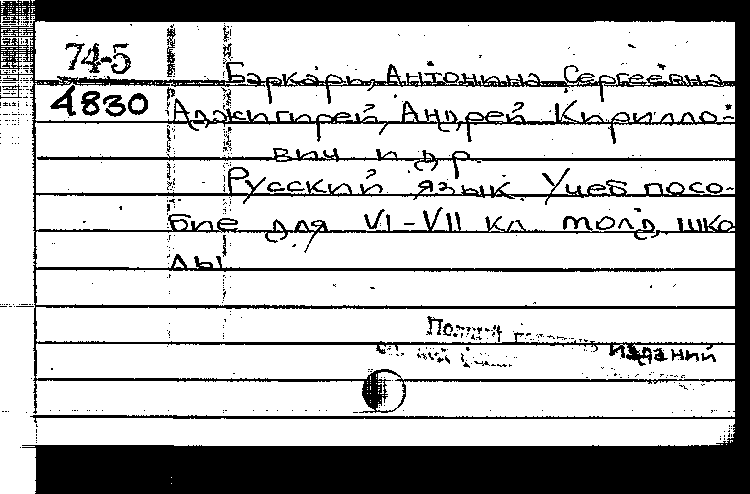 74-5
4830
Баркарь, Антонина Сергеевна
Аджигирей, Андрей Кирилло-
вич и др.
Русский язык. Учеб посо-
бие для VI-VII кл. молд. шко
лы
Полный
изданий